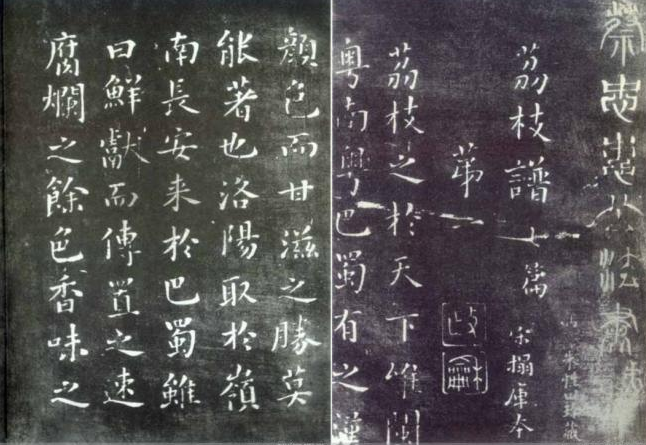 蔡忠惠公法書
荔枝譜七篇 宋搨庫本
第一
政龢
荔枝之於天下唯閩
粤南粤巴蜀有之漢
顏色而甘滋之勝莫
能著也洛陽取於嶺
南長安来於巴蜀雖
曰鮮獻而傳置之速
腐爛之餘色香味之